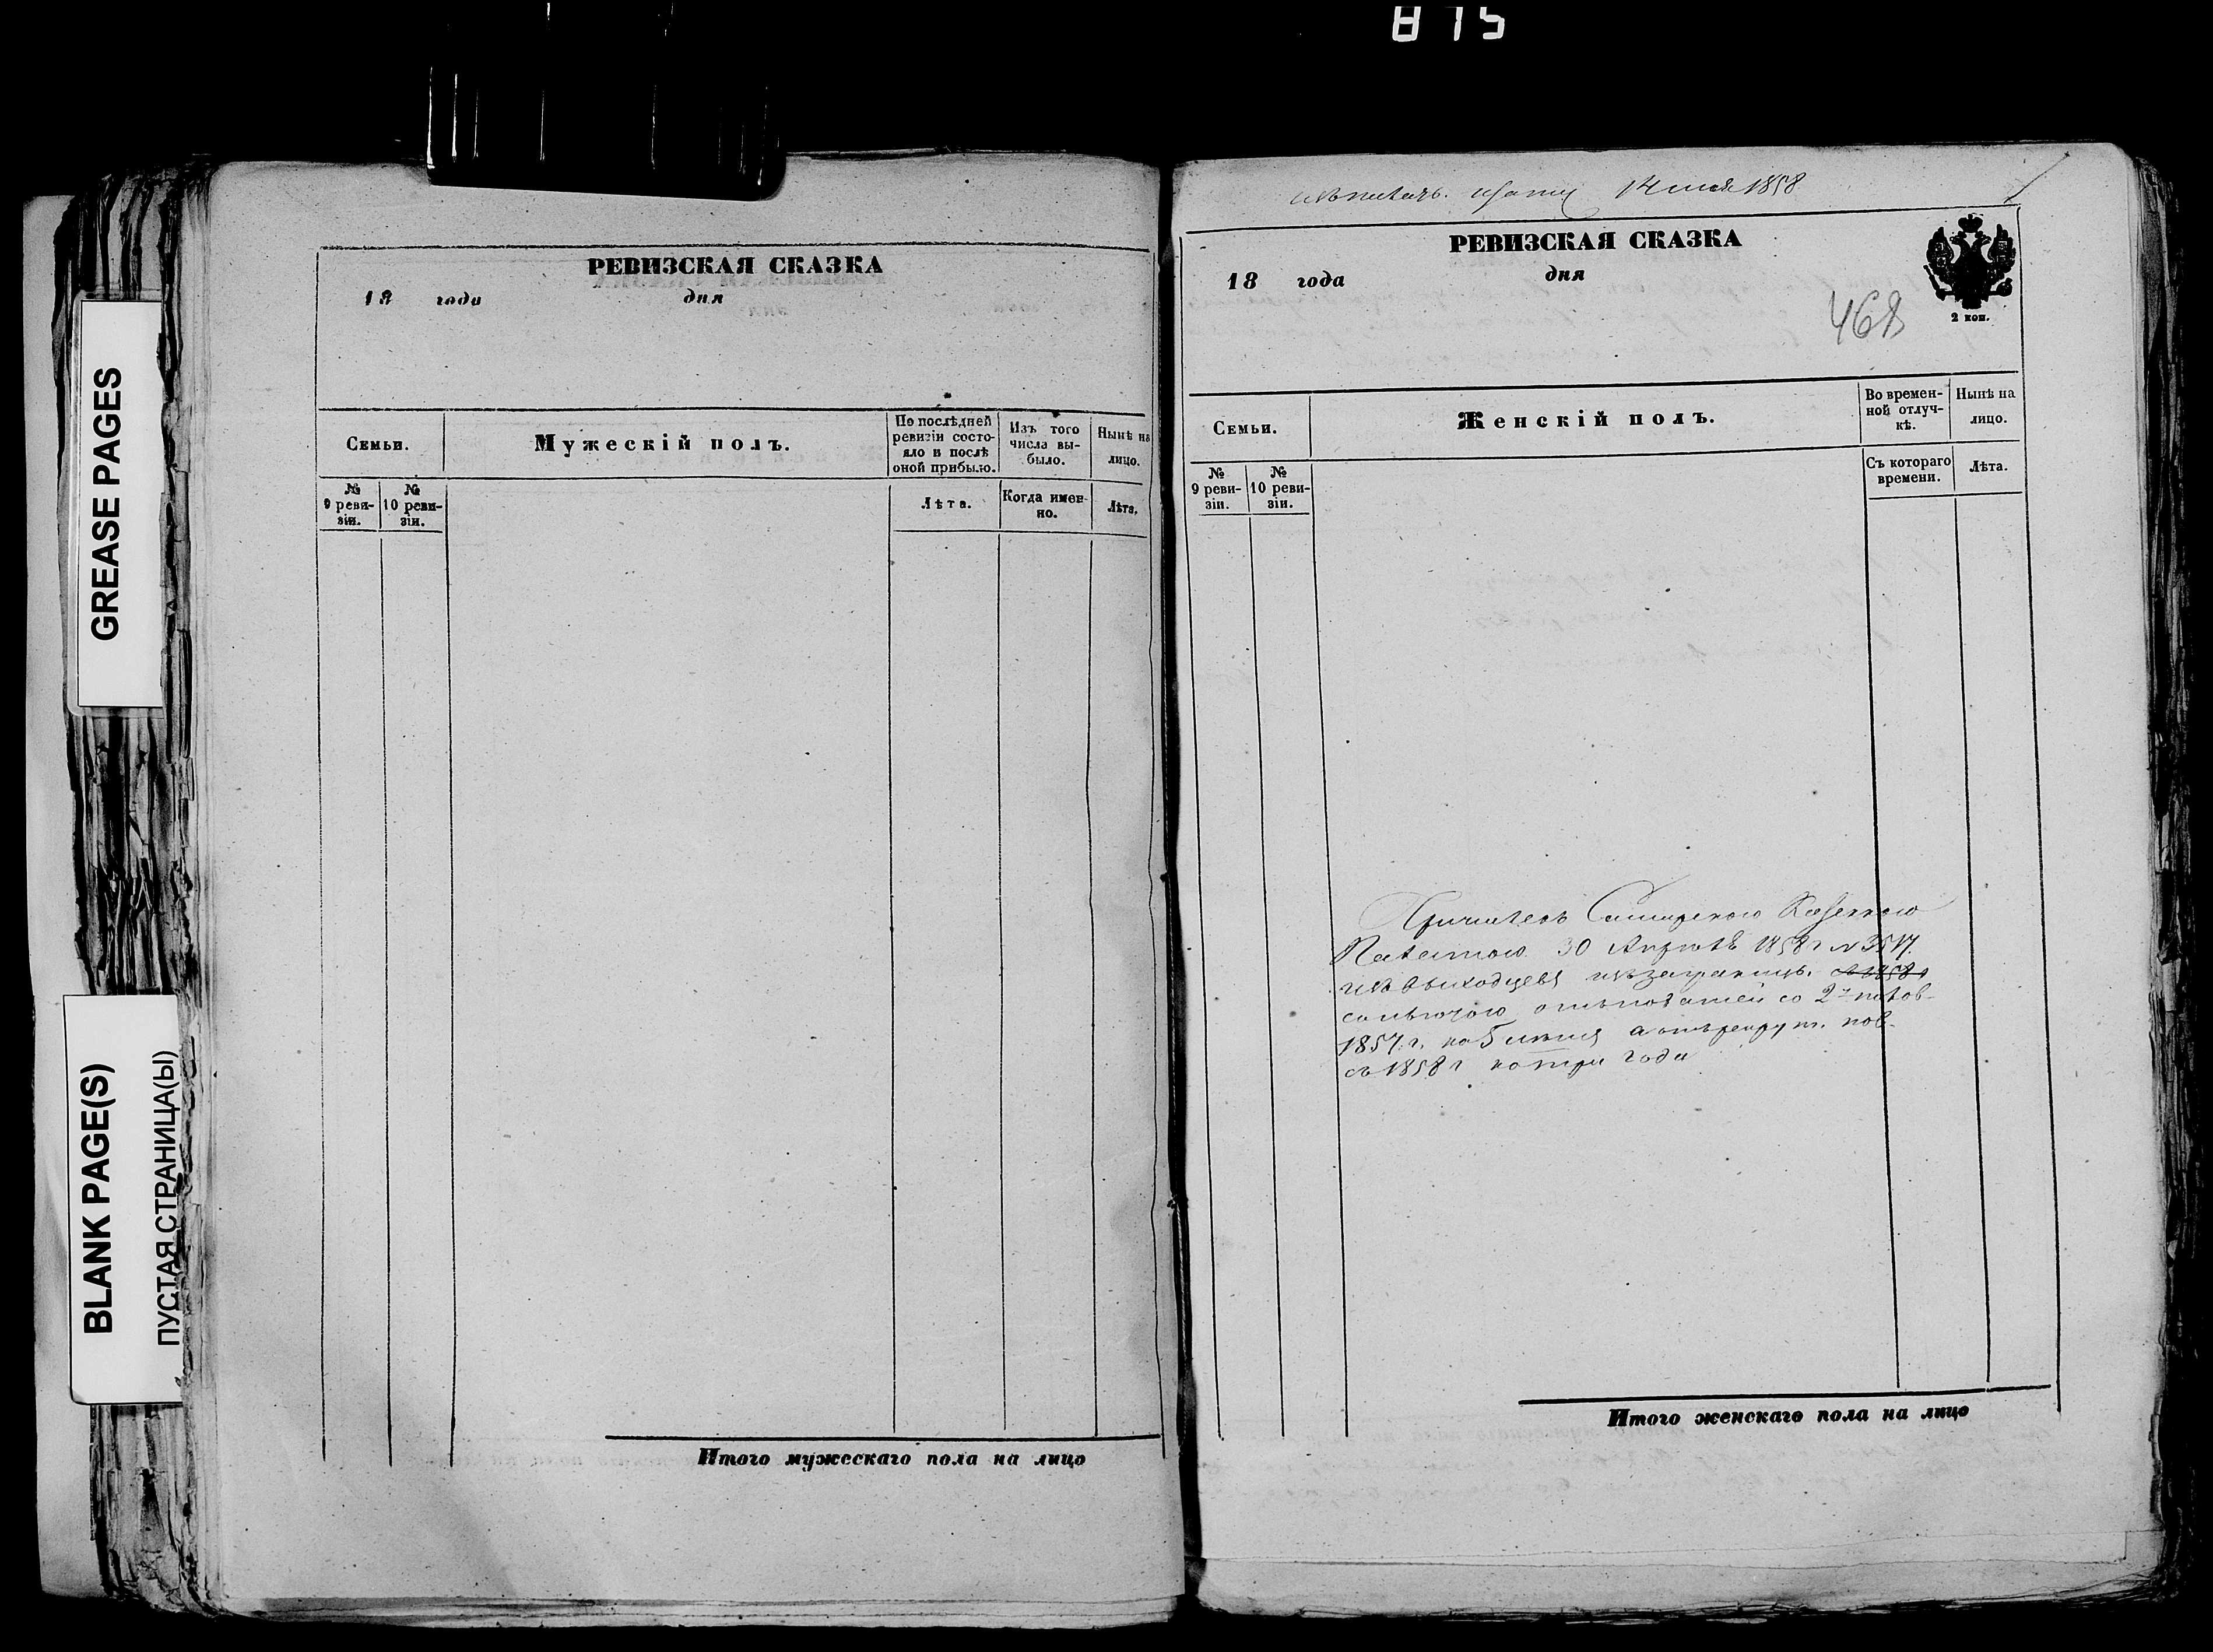 815
GREASE PAGES
BLANK PAGE(S)
ПУСТАЯ СТРАНИЦА(Ы)
РЕВИЗСКАЯ СКАЗКА
18 года дня
Семьи.
Мужескій полъ.
По послѣдней ревизіи состояло и послѣ оной прибыло.
Изъ того числа выбыло.
Нынѣ на лицо.
№ 9 ревизіи.
№ 10 ревизіи.
Лѣта.
Когда именно.
Лѣта.
Итого мужескаго пола на лицо
14 мая 1858
РЕВИЗСКАЯ СКАЗКА
18 года дня
468
2 коп.
Семьи.
Женскій полъ.
Во временной отлучкѣ.
Нынѣ на лицо.
№ 9 ревизіи.
№ 10 ревизіи.
Съ котораго времени.
Лѣта.
Причисленъ Казенною
Палатою 30 Апрѣля 1858 г № 3517.
изъ выходцевъ изъ заграницы. съ 1858 г
со льготою отъ податей со 2й полов-
1857 г. на 5 а отъ рекрут. пов-
съ 1858 г на три года
Итого женскаго пола на лицо